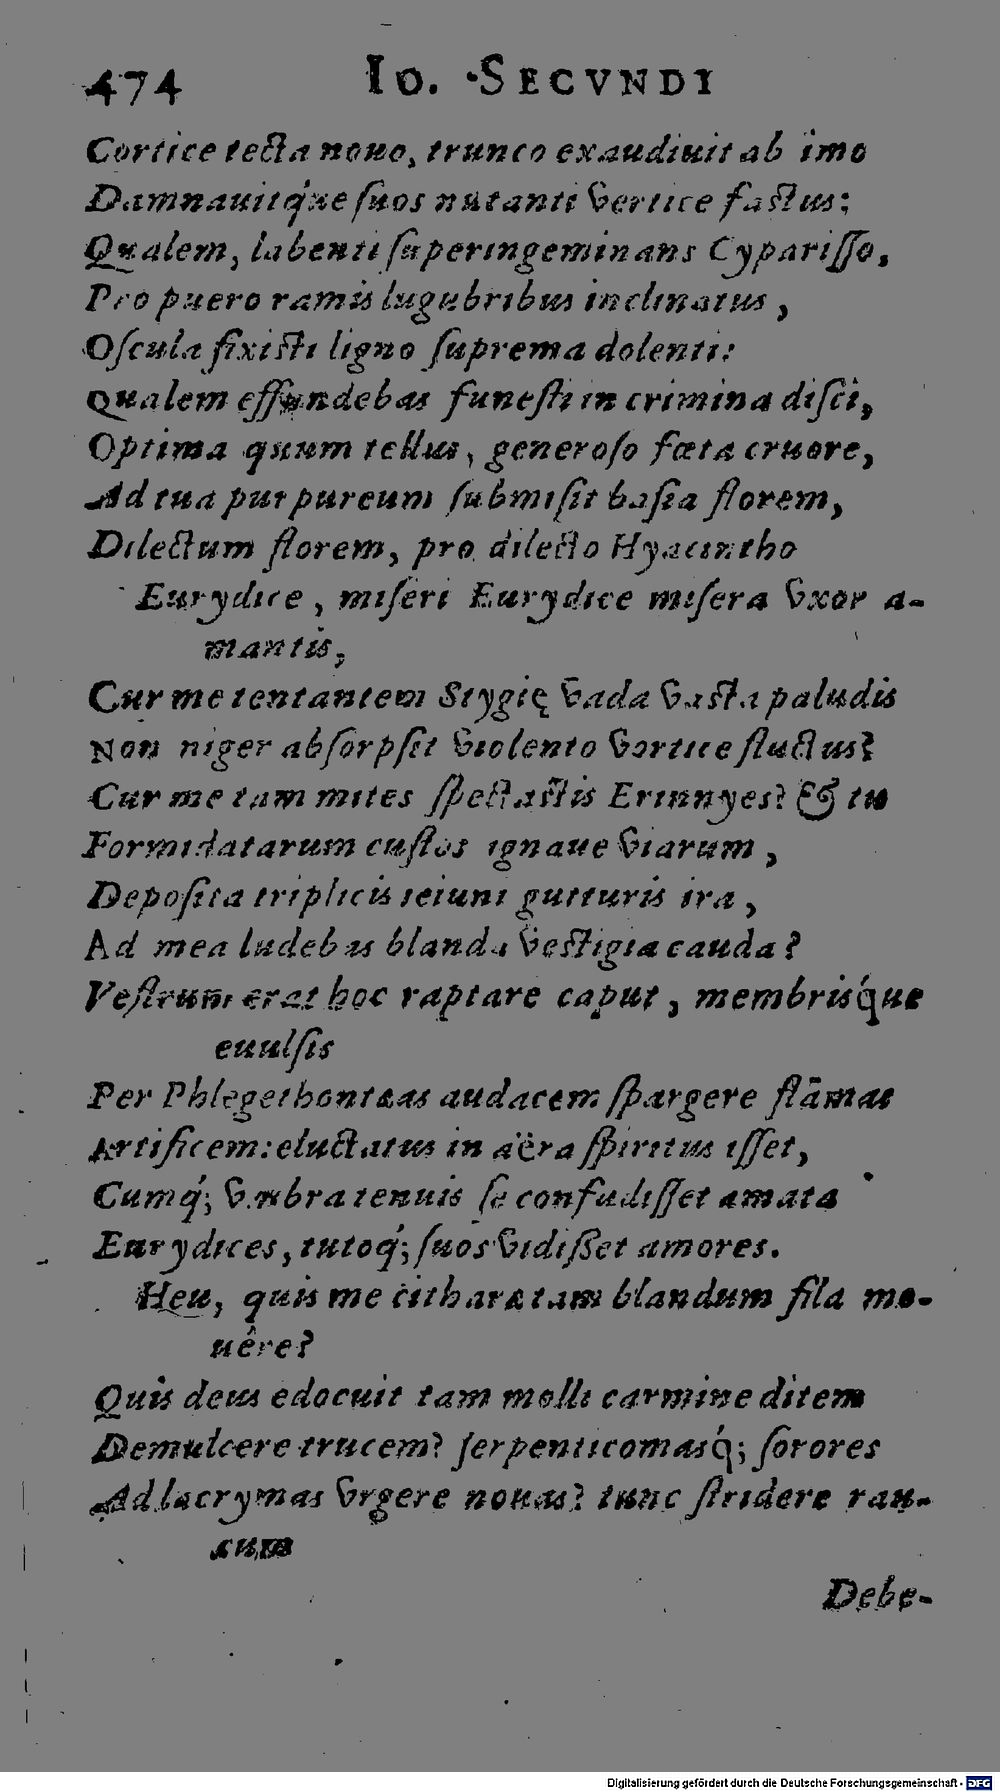 474 Io. SECVNDI
Cortice tecta nouo, trunco exaudiuit ab imo
Damnauitq́ue ſuos nutanti vertice faſtus:
Qualem, labenti ſuperingeminans Cypariſſo,
Pro puero ramis lugubribus inclinatus,
Oſcula fixiſti ligno ſuprema dolenti:
Qualem effundebas funeſti in crimina diſci,
Optima quum tellus, generoſo fœta cruore,
Ad tua purpureum ſubmiſit baſia florem,
Dilectum florem, pro dilecto Hyacintho
Eurydice, miſeri Eurydice miſera vxor a-
mantis,
Cur me tentantem Stygię vada vaſta paludis
Non niger abſorpſit violento vortice fluctus?
Cur me tam mites ſpectaſtis Erinnyes? & tu
Formidatarum cuſtos ignaue viarum,
Depoſita triplicis ieiuni gutturis ira,
Ad mea ludebas blanda veſtigia cauda?
Veſtrum erat hoc raptare caput, membrisq́ue
euulſis
Per Phlegethontæas audacem ſpargere flāmas
Artificem: eluctatus in aëra ſpiritus iſſet,
Cumq́; vmbra tenuis ſe confudiſſet amata
Eurydices, tutoq́; ſuos vidiſſet amores.
Heu, quis me citharæ tam blandum fila mo-
uêre?
Quis deus edocuit tam molli carmine ditem
Demulcere trucem? ſerpenticomasq́; ſorores
Ad lacrymas vrgere nouas? tunc ſtridere rau-
cum
Debe-
Digitalisierung gefördert durch die Deutsche Forschungsgemeinschaft - DFG